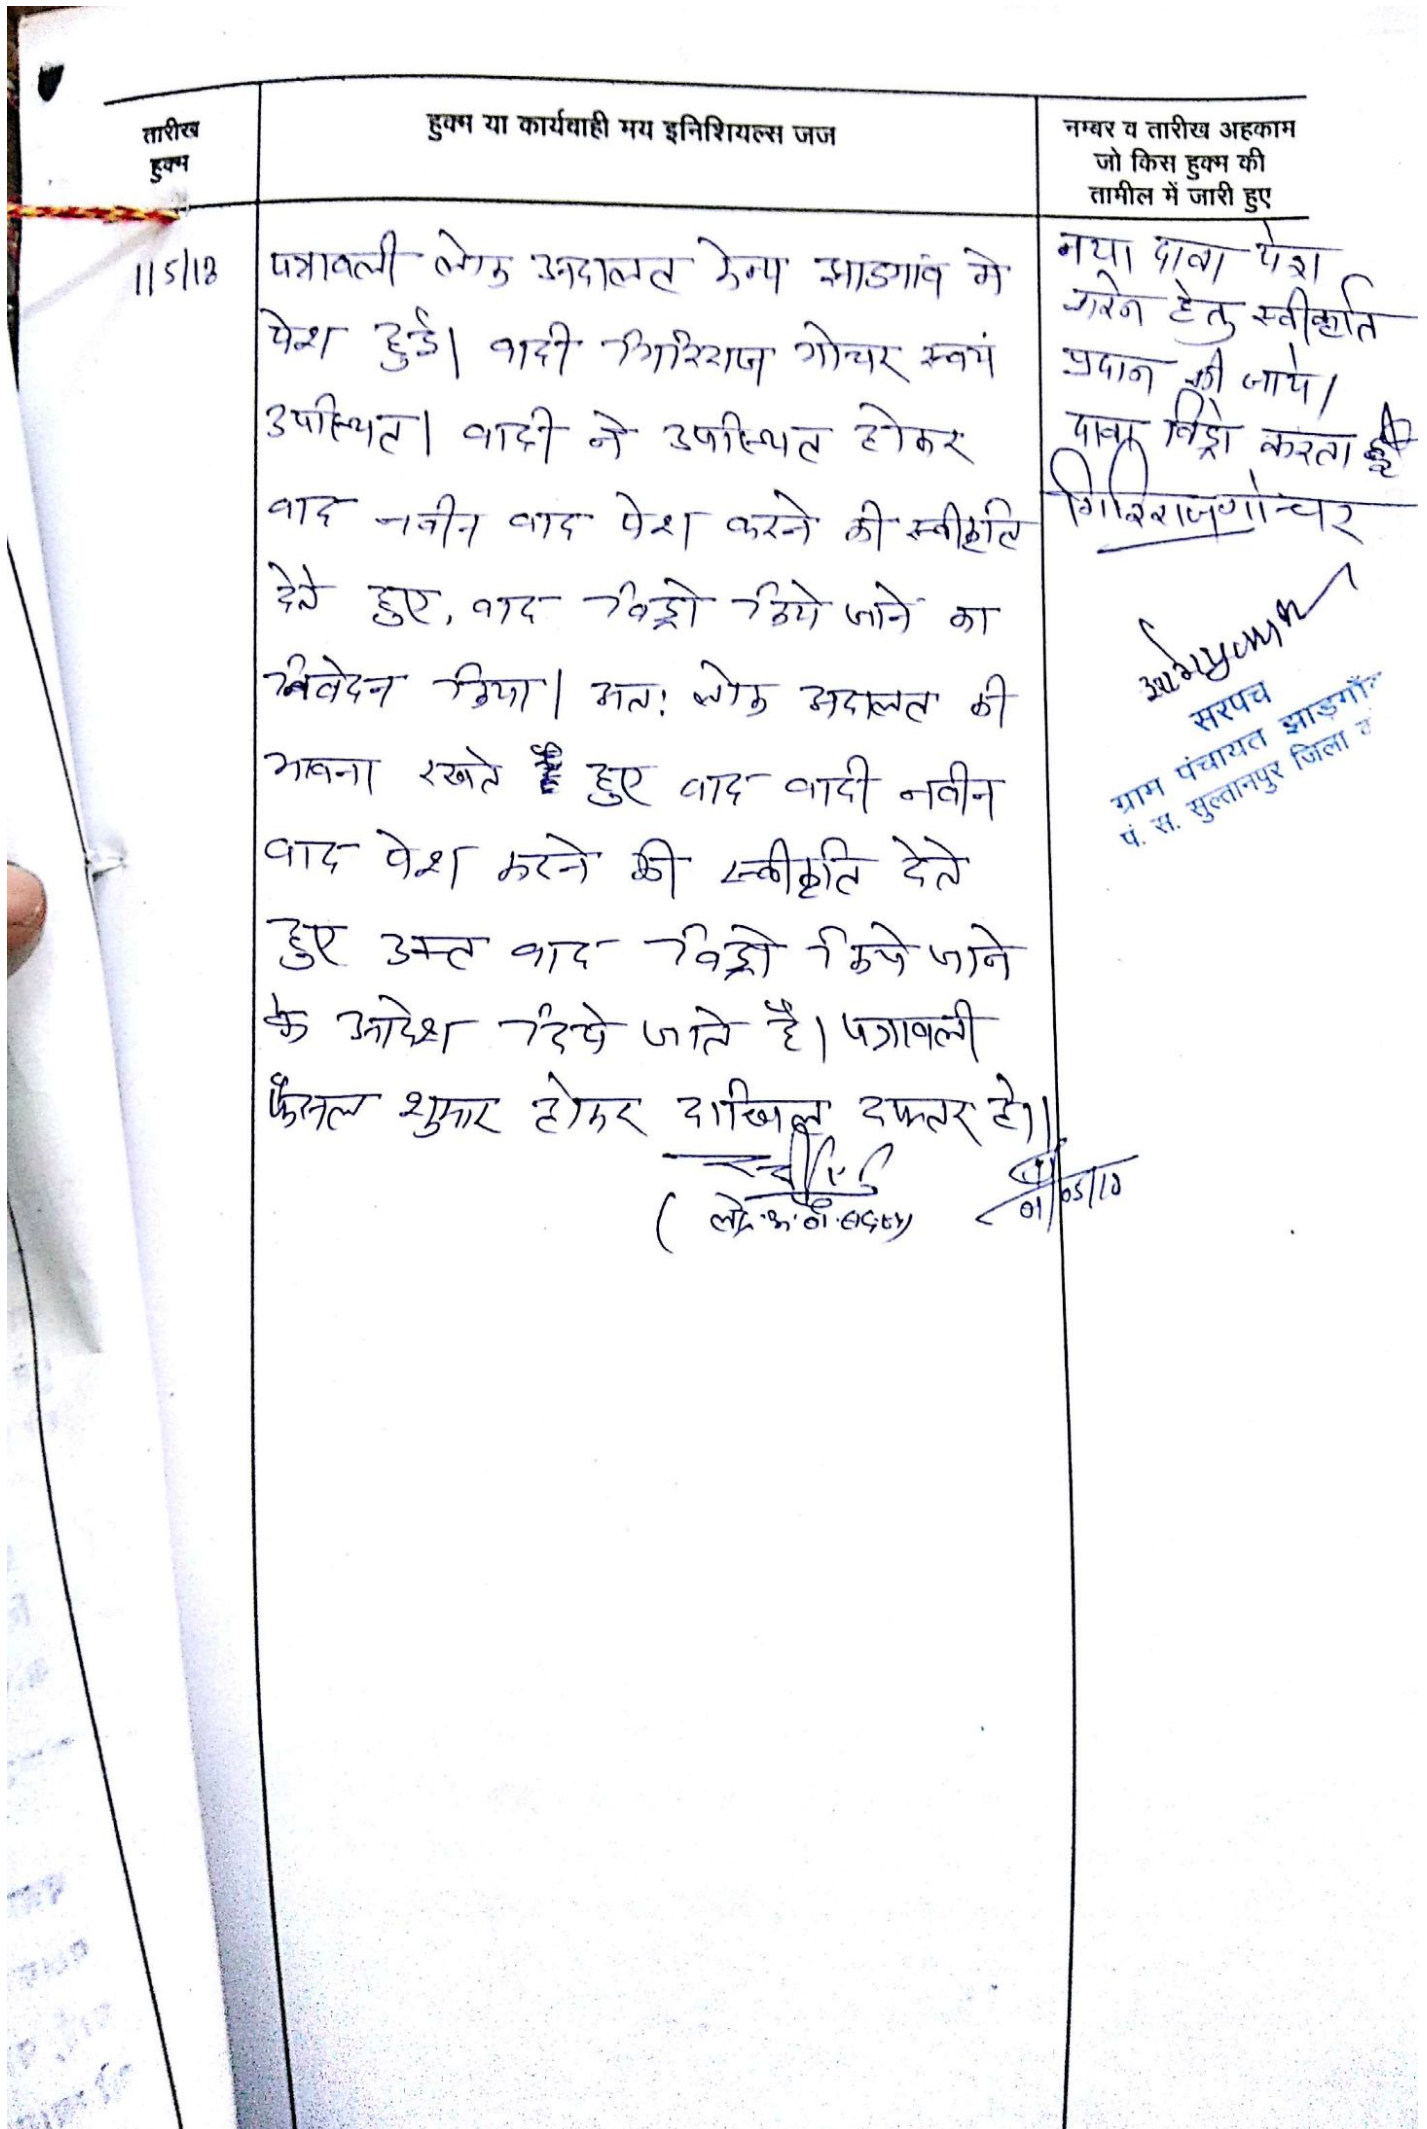 तारीख
हुक्म
हुक्म या कार्यवाही मय इनिशियल्स जज
नम्बर व तारीख अहकाम
जो किस हुक्म की
तामील में जारी हुए
1/5/18
पत्रावली लोक अदालत केम्प झाडगांव मे
पेश हुई। वादी गिरिराज गोचर स्वयं
उपस्थित। वादी ने उपस्थित होकर
वाद नवीन वाद पेश करने की स्वीकृति
देते हुए, वाद विड्रो किये जाने का
निवेदन किया। अत: लोक अदालत की
भावना रखते हुए वाद वादी नवीन
वाद पेश करने की स्वीकृति देते
हुए उक्त वाद विड्रो किये जाने
के आदेश दिये जाते है। पत्रावली
फैसल शुमार होकर दाखिल दफ्तर हो।
01/05/18
नया दावा पेश
करने हेतु स्वीकृति
प्रदान की जाये।
दावा विड्रो करता हूँ
गिरिराज गोचर
सरपंच
ग्राम पंचायत झाड़गाँव
पं. स. सुल्तानपुर जिला